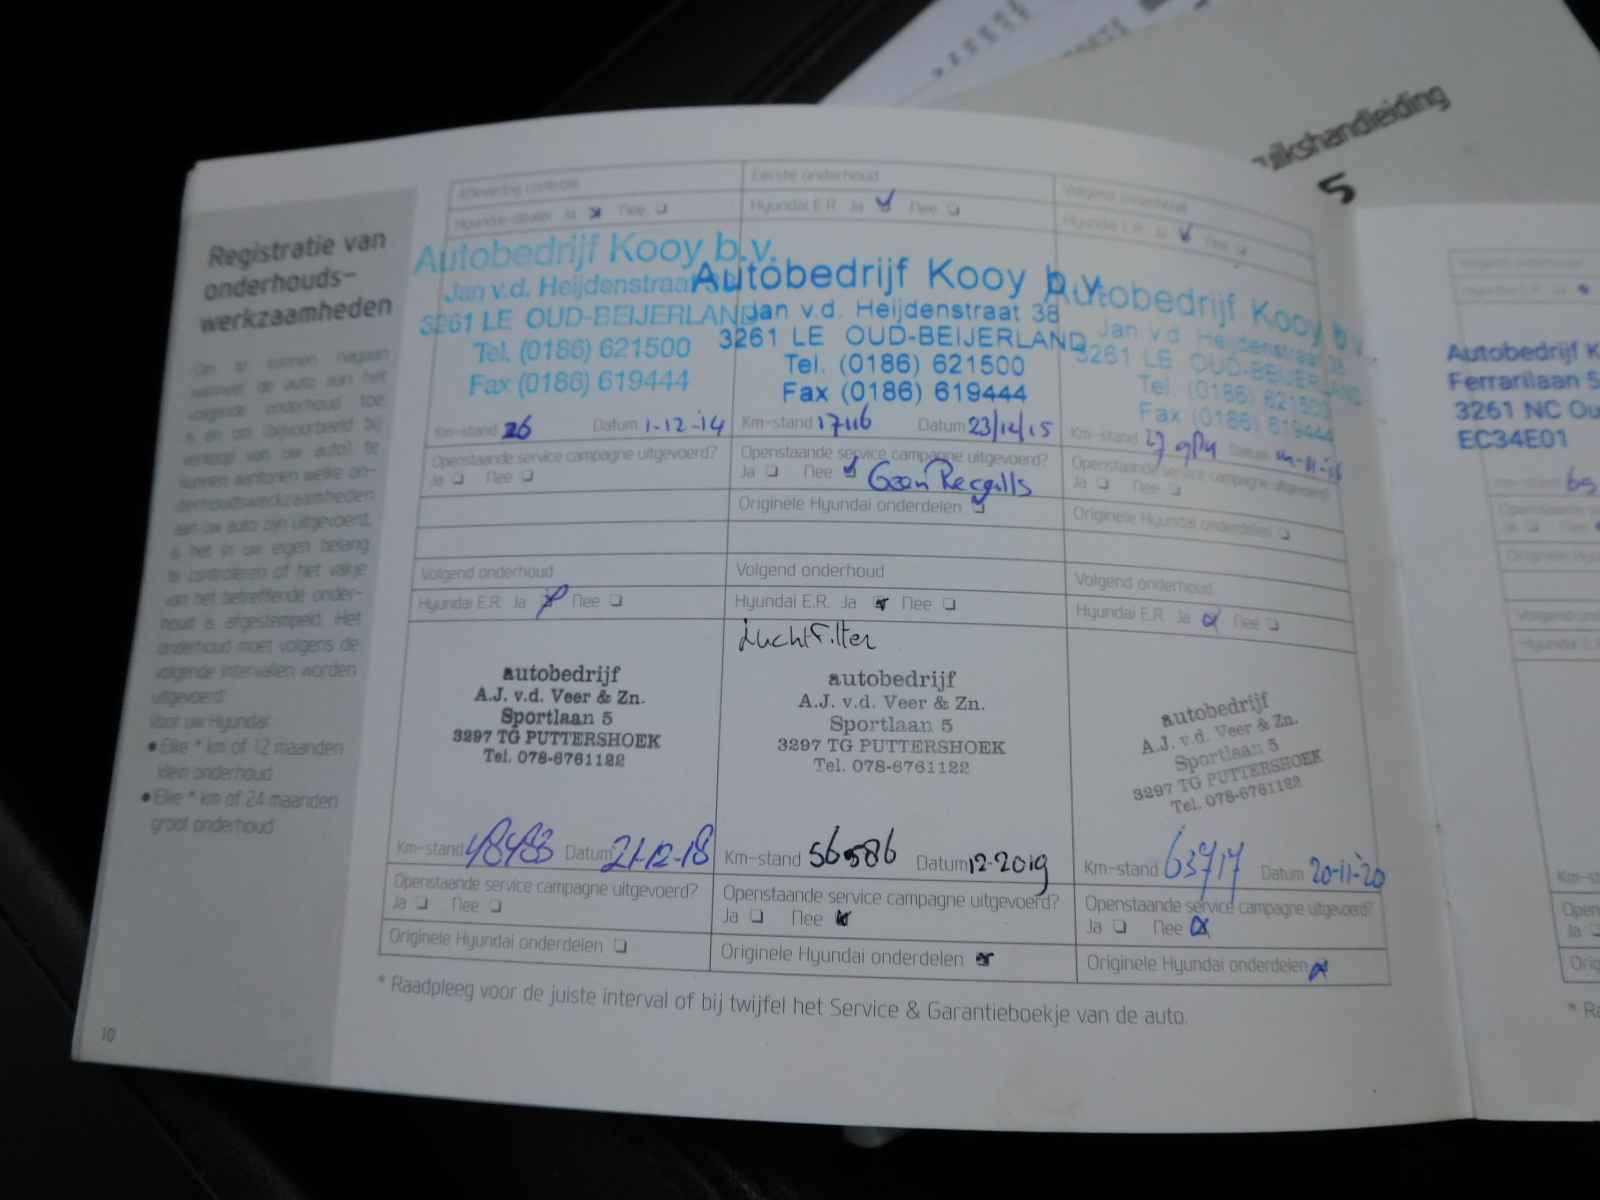 uikshandleiding
5
Registratie van
onderhouds-
werkzaamheden
Om te kunnen nagaan
wanneer de auto aan het
volgende onderhoud toe
is en om (bijvoorbeeld bij
verkoop van uw auto) te
kunnen aantonen welke on-
derhoudswerkzaamheden
aan uw auto zijn uitgevoerd,
is het in uw eigen belang
te controleren of het vakje
van het betreffende onder-
houd is afgestempeld. Het
onderhoud moet volgens de
volgende intervallen worden
uitgevoerd:
Voor uw Hyundai:
• Elke * km of 12 maanden
klein onderhoud
• Elke * km of 24 maanden
groot onderhoud
10
Aflevering controle
Hyundai-dealer Ja Nee
Autobedrijf Kooy b.v.
Jan v.d. Heijdenstraat
3261 LE OUD-BEIJERLAND
Tel. (0186) 621500
Fax (0186) 619444
Km-stand 26 Datum 1-12-'14
Openstaande service campagne uitgevoerd?
Ja Nee
Eerste onderhoud
Hyundai E.R. Ja Nee
Autobedrijf Kooy b.v.
Jan v.d. Heijdenstraat 38
3261 LE OUD-BEIJERLAND
Tel. (0186) 621500
Fax (0186) 619444
Km-stand Datum
Openstaande service campagne uitgevoerd?
Ja Nee Geen Recalls
Originele Hyundai onderdelen
Volgend onderhoud
Hyundai E.R. Ja Nee
Autobedrijf Kooy b.v.
Jan v.d. Heijdenstraat 38
3261 LE OUD-BEIJERLAND
Tel. (0186) 621500
Fax (0186) 619444
Km-stand Datum
Openstaande service campagne uitgevoerd?
Ja Nee
Originele Hyundai onderdelen
Volgend onderhoud
Hyundai E.R. Ja Nee
autobedrijf
A.J. v.d. Veer & Zn.
Sportlaan 5
3297 TG PUTTERSHOEK
Tel. 078-6761122
Km-stand 48483 Datum 21-12-18
Openstaande service campagne uitgevoerd?
Ja Nee
Originele Hyundai onderdelen
Volgend onderhoud
Hyundai E.R. Ja Nee
Luchtfilter
autobedrijf
A.J. v.d. Veer & Zn.
Sportlaan 5
3297 TG PUTTERSHOEK
Tel. 078-6761122
Km-stand 56586 Datum 12-2019
Openstaande service campagne uitgevoerd?
Ja Nee
Originele Hyundai onderdelen
Volgend onderhoud
Hyundai E.R. Ja Nee
autobedrijf
A.J. v.d. Veer & Zn.
Sportlaan 5
3297 TG PUTTERSHOEK
Tel. 078-6761122
Km-stand 63717 Datum 20-11-'20
Openstaande service campagne uitgevoerd?
Ja Nee
Originele Hyundai onderdelen
* Raadpleeg voor de juiste interval of bij twijfel het Service & Garantieboekje van de auto.
Autobedrijf K
Ferrarilaan 5
3261 NC Ou
EC34E01